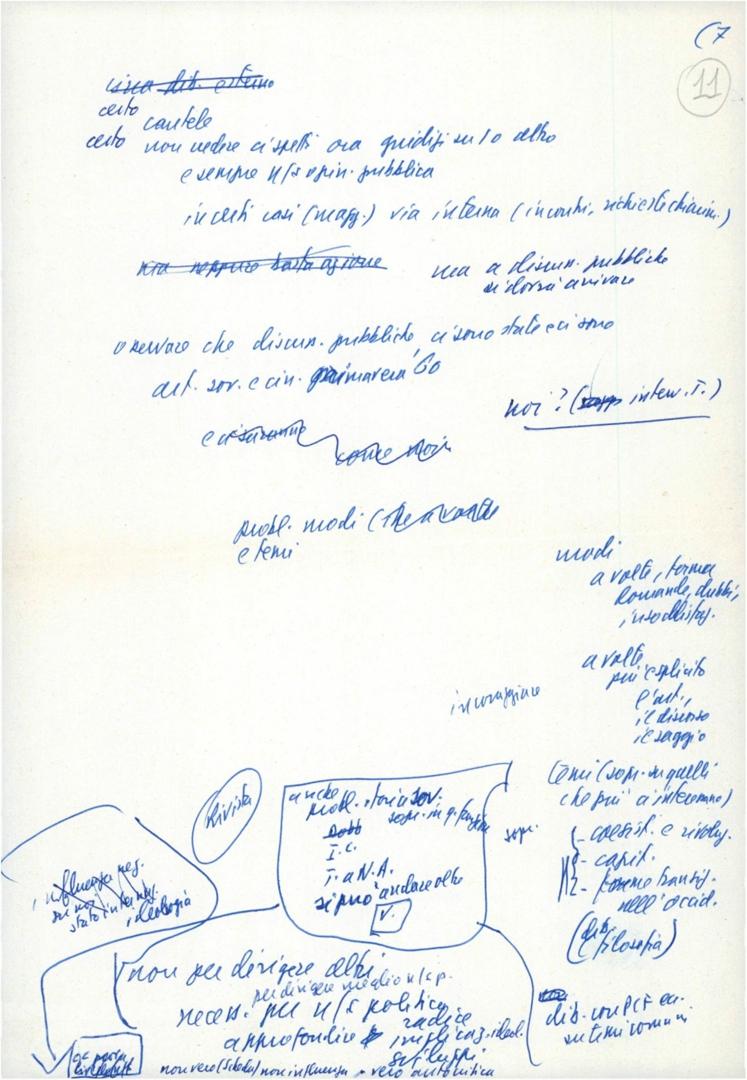 (7
11
circa dib. esterno
certo cautele
certo non vedere ci spetti ora giudizi su l'o altro
e sempre n/s opin. pubblica
in certi casi (magg.) via interna (incontri, richieste chiarim.)
ma neppure basta azione
ma a discuss. pubbliche
si dovrà arrivare
osservare che discuss. pubbliche ci sono state e ci sono
art. sov. e cin. primavera '60
noi? ( interv. T.)
e ci saranno
come noi
probl. modi (
e temi
modi
a volte, forma
domande, dubbi,
insoddisfaz.
a volte
più esplicito
l'art.,
il discorso
il saggio
incoraggiare
temi (sopr. su quelli
che più ci interessano)
sopr.
- coesist. e rivoluz.
- capit.
- forme transiz.
nell'occid.
(dib.
filosofia)
Rivista
anche
probl. storia sov.
sopr. in q. funzione
I.C.
T. a N.A.
si può andare oltre
V.
influenza neg.
su noi
stato internaz.
ideologia
non per dirigere altri
per dirigere meglio n/s p.
necess. per n/s politica
radice
approfondire implicaz. ideol.
sviluppi
non vero (Scheda) non influenza vero autocritica
dib. con PCF ecc.
su temi comuni